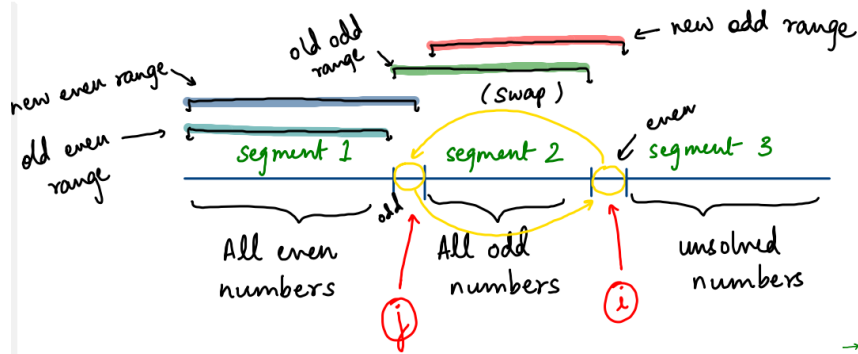 old odd
range
new odd range
new even range
(swap)
old even
range
even
segment 1
segment 2
segment 3
odd
All even
numbers
All odd
numbers
unsolved
numbers
j
i